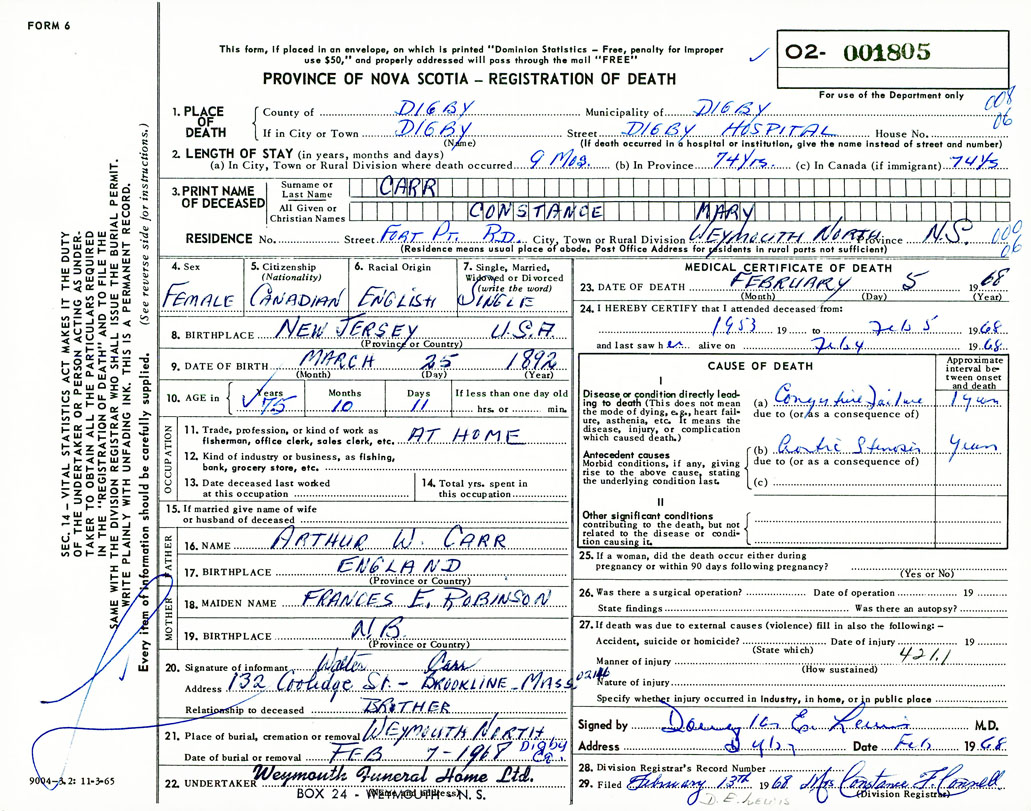 FORM 6
This form, if placed in an envelope, on which is printed "Dominion Statistics – Free, penalty for improper
use $50," and properly addressed will pass through the mail "FREE"
O2- 001805
PROVINCE OF NOVA SCOTIA – REGISTRATION OF DEATH
For use of the Department only
008
06
1. PLACE OF DEATH
County of DIGBY Municipality of DIGBY
If in City or Town DIGBY Street DIGBY HOSPITAL House No.
(Name) (If death occurred in a hospital or institution, give the name instead of street and number)
2. LENGTH OF STAY (in years, months and days)
(a) In City, Town or Rural Division where death occurred 9 Mos. (b) In Province 74 Yrs. (c) In Canada (if immigrant) 74 Ys
3. PRINT NAME OF DECEASED
Surname or Last Name CARR
All Given or Christian Names CONSTANCE MARY
RESIDENCE No. Street FORT PT. RD. City, Town or Rural Division WEYMOUTH NORTH Province N.S.
(Residence means usual place of abode. Post Office Address for residents in rural parts not sufficient)
06
4. Sex
FEMALE
5. Citizenship
(Nationality)
CANADIAN
6. Racial Origin
ENGLISH
7. Single, Married,
Widowed or Divorced
(write the word)
SINGLE
8. BIRTHPLACE NEW JERSEY U.S.A.
(Province or Country)
9. DATE OF BIRTH MARCH 25 1892
(Month) (Day) (Year)
10. AGE in
Years Months Days If less than one day old
75 10 11 hrs. or min.
OCCUPATION
11. Trade, profession, or kind of work as
fisherman, office clerk, sales clerk, etc. AT HOME
12. Kind of industry or business, as fishing,
bank, grocery store, etc.
13. Date deceased last worked
at this occupation
14. Total yrs. spent in
this occupation
15. If married give name of wife
or husband of deceased
FATHER
16. NAME ARTHUR W. CARR
17. BIRTHPLACE ENGLAND
(Province or Country)
MOTHER
18. MAIDEN NAME FRANCES E. ROBINSON
19. BIRTHPLACE N.B.
(Province or Country)
20. Signature of informant Walter Carr
Address 132 Coolidge St – BROOKLINE – MASS 02146
Relationship to deceased BROTHER
21. Place of burial, cremation or removal WEYMOUTH NORTH
Date of burial or removal FEB 7 – 1968 Digby Co.
22. UNDERTAKER Weymouth Funeral Home Ltd.
(Name and address)
BOX 24 – WEYMOUTH N. S.
9004-3.2: 11-3-65
MEDICAL CERTIFICATE OF DEATH
23. DATE OF DEATH FEBRUARY 5 1968
(Month) (Day) (Year)
24. I HEREBY CERTIFY that I attended deceased from:
1953 19 to Feb 5 1968
and last saw her alive on Feb 4 1968
CAUSE OF DEATH
Approximate
interval be-
tween onset
and death
I
Disease or condition directly lead-
ing to death (This does not mean
the mode of dying, e.g., heart fail-
ure, asthenia, etc. It means the
disease, injury, or complication
which caused death.)
(a) Congestive Failure 1 year
due to (or as a consequence of)
Antecedent causes
Morbid conditions, if any, giving
rise to the above cause, stating
the underlying condition last.
(b) Aortic Stenosis years
due to (or as a consequence of)
(c)
II
Other significant conditions
contributing to the death, but not
related to the disease or condi-
tion causing it.
25. If a woman, did the death occur either during
pregnancy or within 90 days following pregnancy?
(Yes or No)
26. Was there a surgical operation? Date of operation 19
State findings Was there an autopsy?
27. If death was due to external causes (violence) fill in also the following: –
Accident, suicide or homicide? Date of injury 19
(State which) 421.1
Manner of injury
(How sustained)
Nature of injury
Specify whether injury occurred in Industry, in home, or in public place
Signed by E. Lewis M.D.
Address Digby Date Feb 1968
28. Division Registrar's Record Number
29. Filed February 13th 1968 Mrs Constance F. Connell
(Division Registrar)
D. E. LEWIS
SEC. 14 – VITAL STATISTICS ACT MAKES IT THE DUTY
OF THE UNDERTAKER OR PERSON ACTING AS UNDER-
TAKER TO OBTAIN ALL THE PARTICULARS REQUIRED
IN THE "REGISTRATION OF DEATH" AND TO FILE THE
SAME WITH THE DIVISION REGISTRAR WHO SHALL ISSUE THE BURIAL PERMIT.
WRITE PLAINLY WITH UNFADING INK. THIS IS A PERMANENT RECORD.
Every item of information should be carefully supplied. (See reverse side for instructions.)